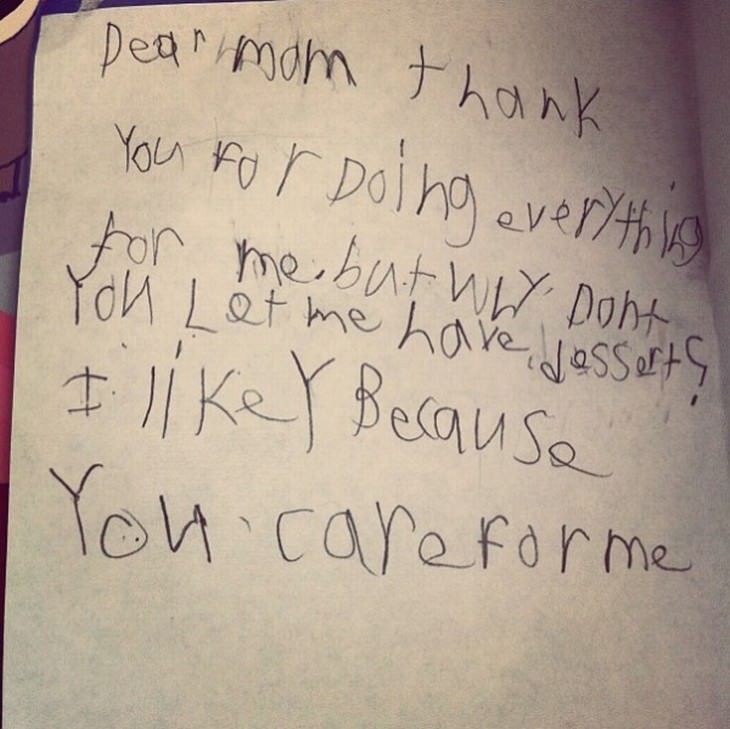 Dear mom thank
You For Doing everything
for me. but why Dont
You Let me have dessert?
I likey Because
You care for me